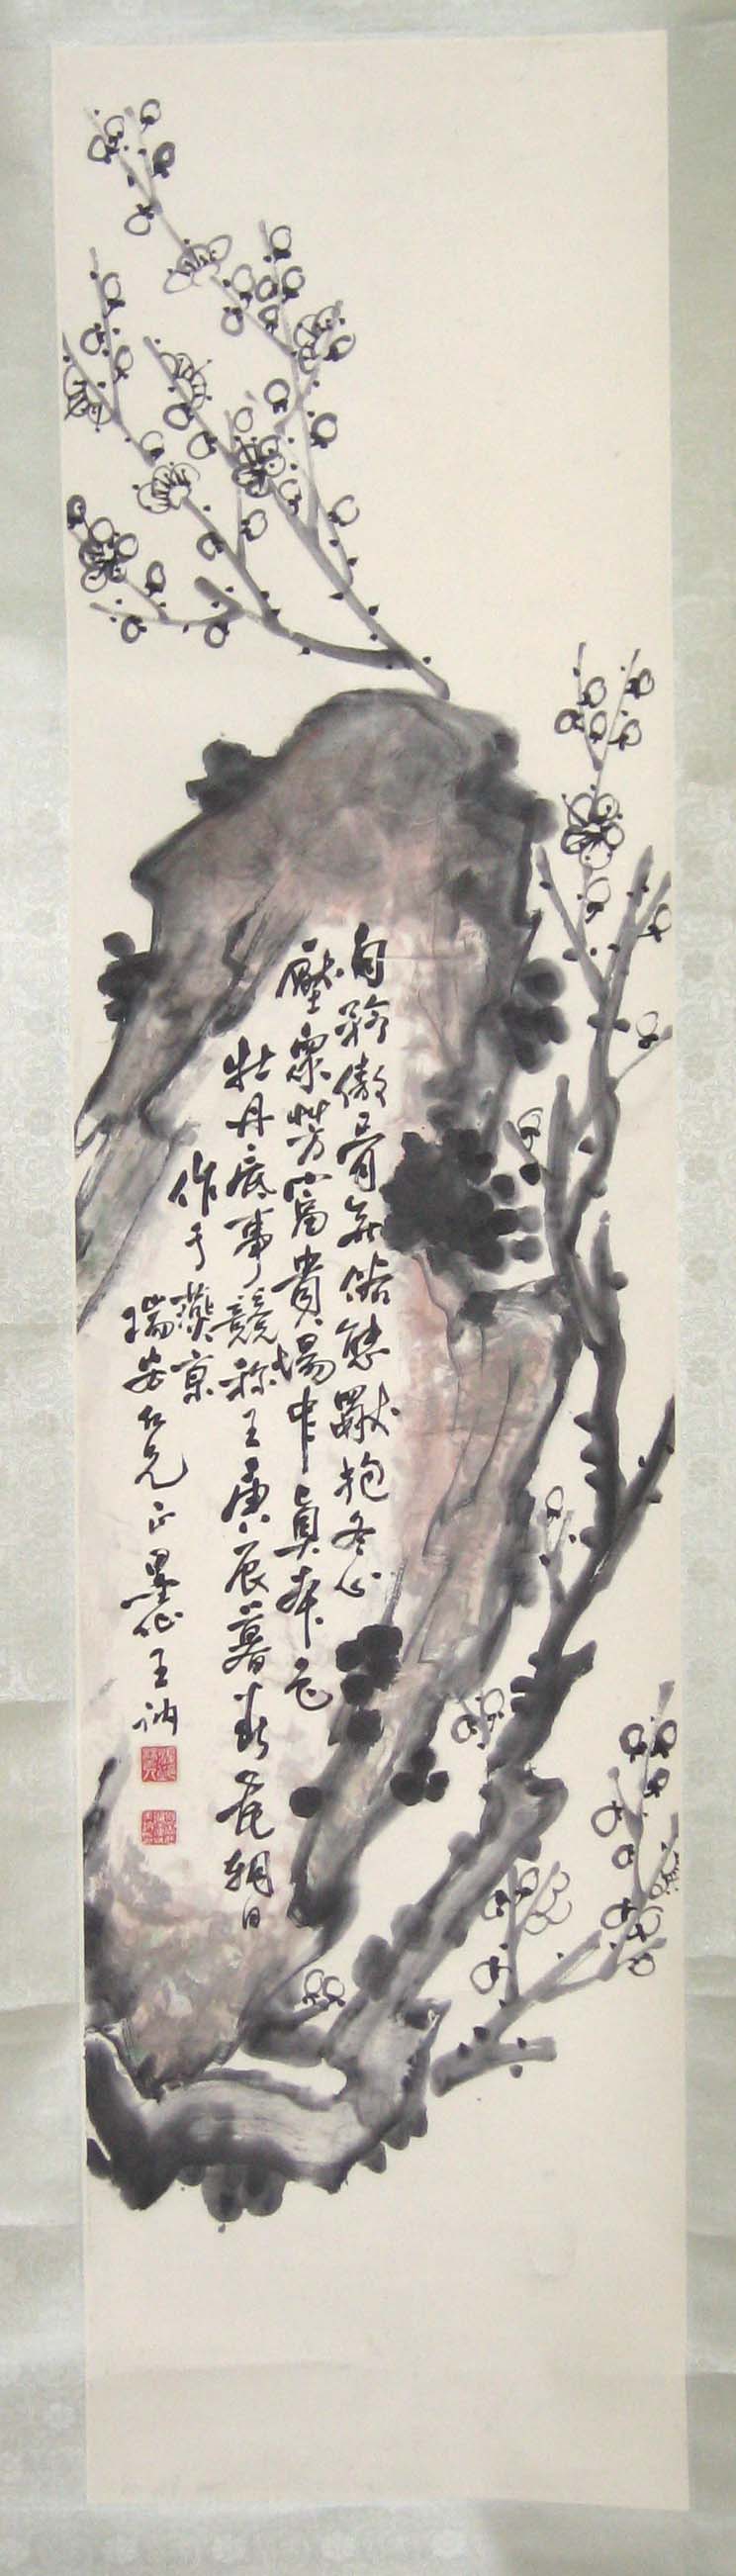 自矜傲骨無俗態獸抱冬心
壓衆芳富貴場中真本色
牡丹底事競称王庚辰暮春花朝日
作于燕京
瑞安仁兄正墨仙王訥